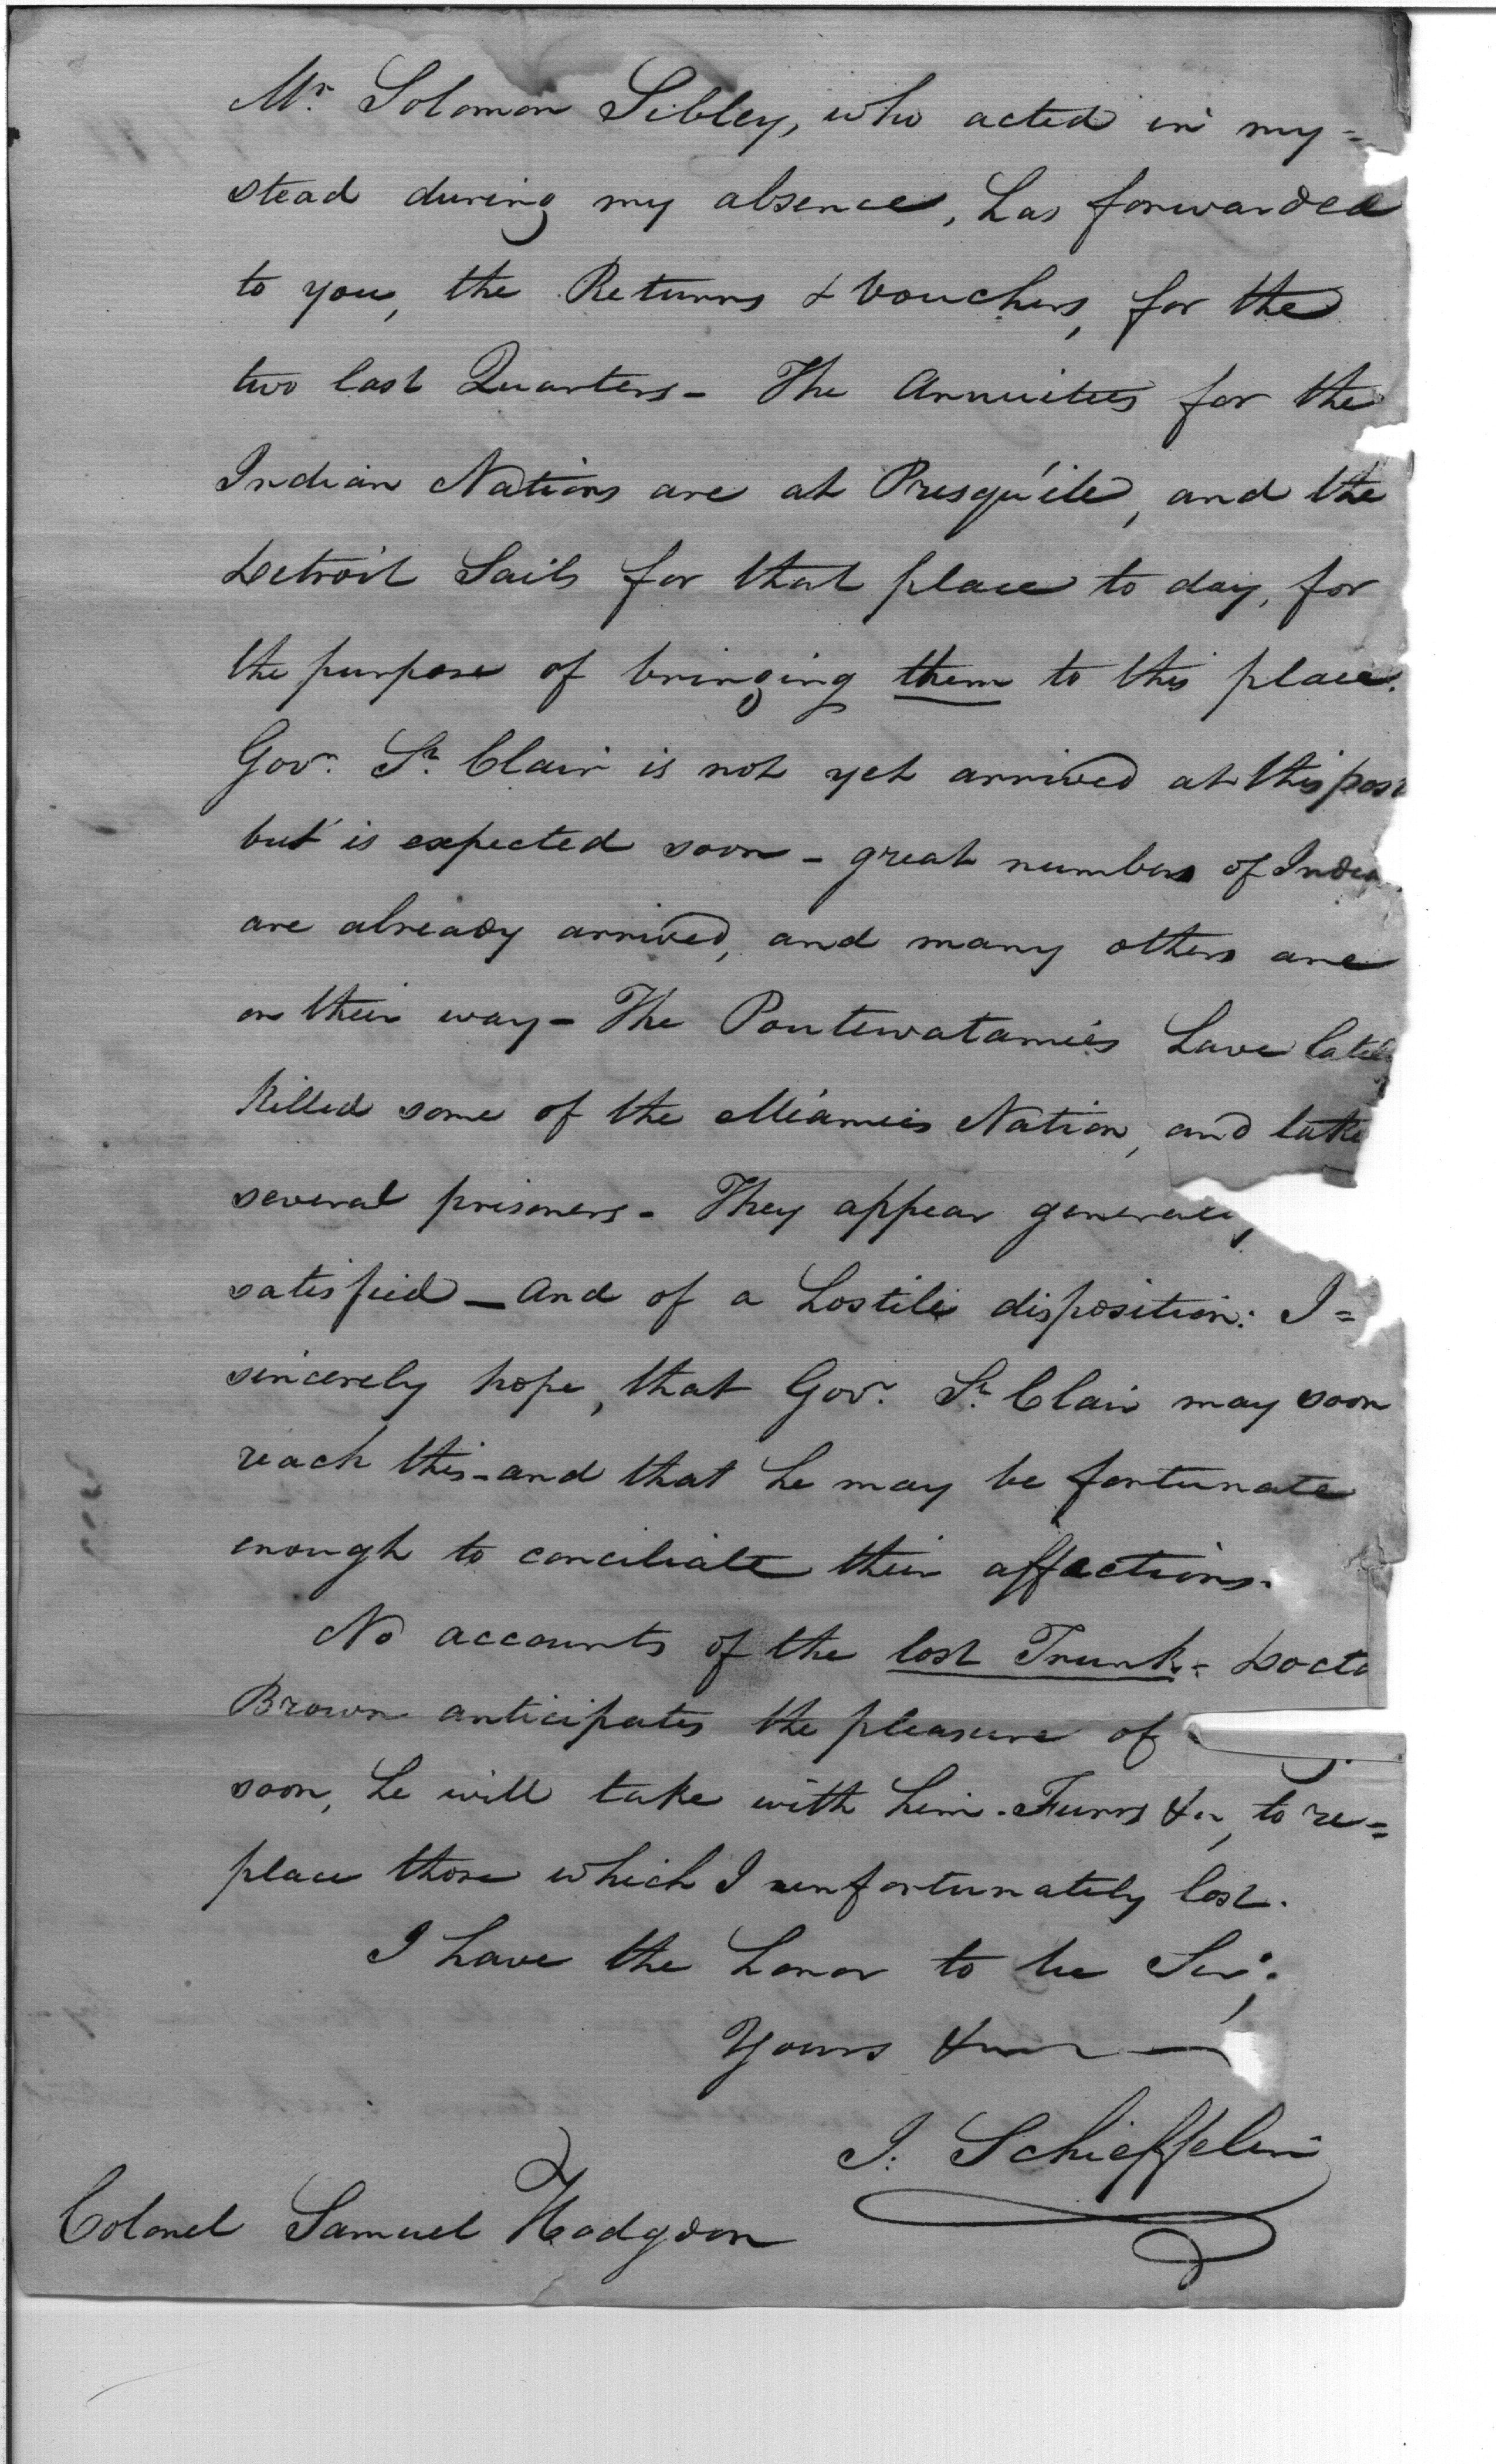 Mr. Solomon Sibley, who acted in my=
stead during my absence, has forwarded
to you, the Returns & Vouchers, for the
two last Quarters - The Annuities for the
Indian Nations are at Presqu'ile, and the
Detroit Sails for that place to day, for
the purpose of bringing them to this place.
Govr. St. Clair is not yet arrived at this post
but is expected soon - great numbers of India
are already arrived, and many others are
on their way - The Poutewatamies have late
killed some of the Miamies Nation, and take
several prisoners - They appear general
satisfied - and of a hostile disposition: I=
sincerely hope, that Govr. St. Clair may soon
reach this - and that he may be fortunate
enough to conciliate their affections.
No accounts of the lost Trunk - Docto
Brown anticipates the pleasure of
soon, he will take with him Furrs &c, to re=
place those which I unfortunately lost.
I have the honor to be Sir;
Yours &c
J. Schieffelin
Colonel Samuel Hodgdon